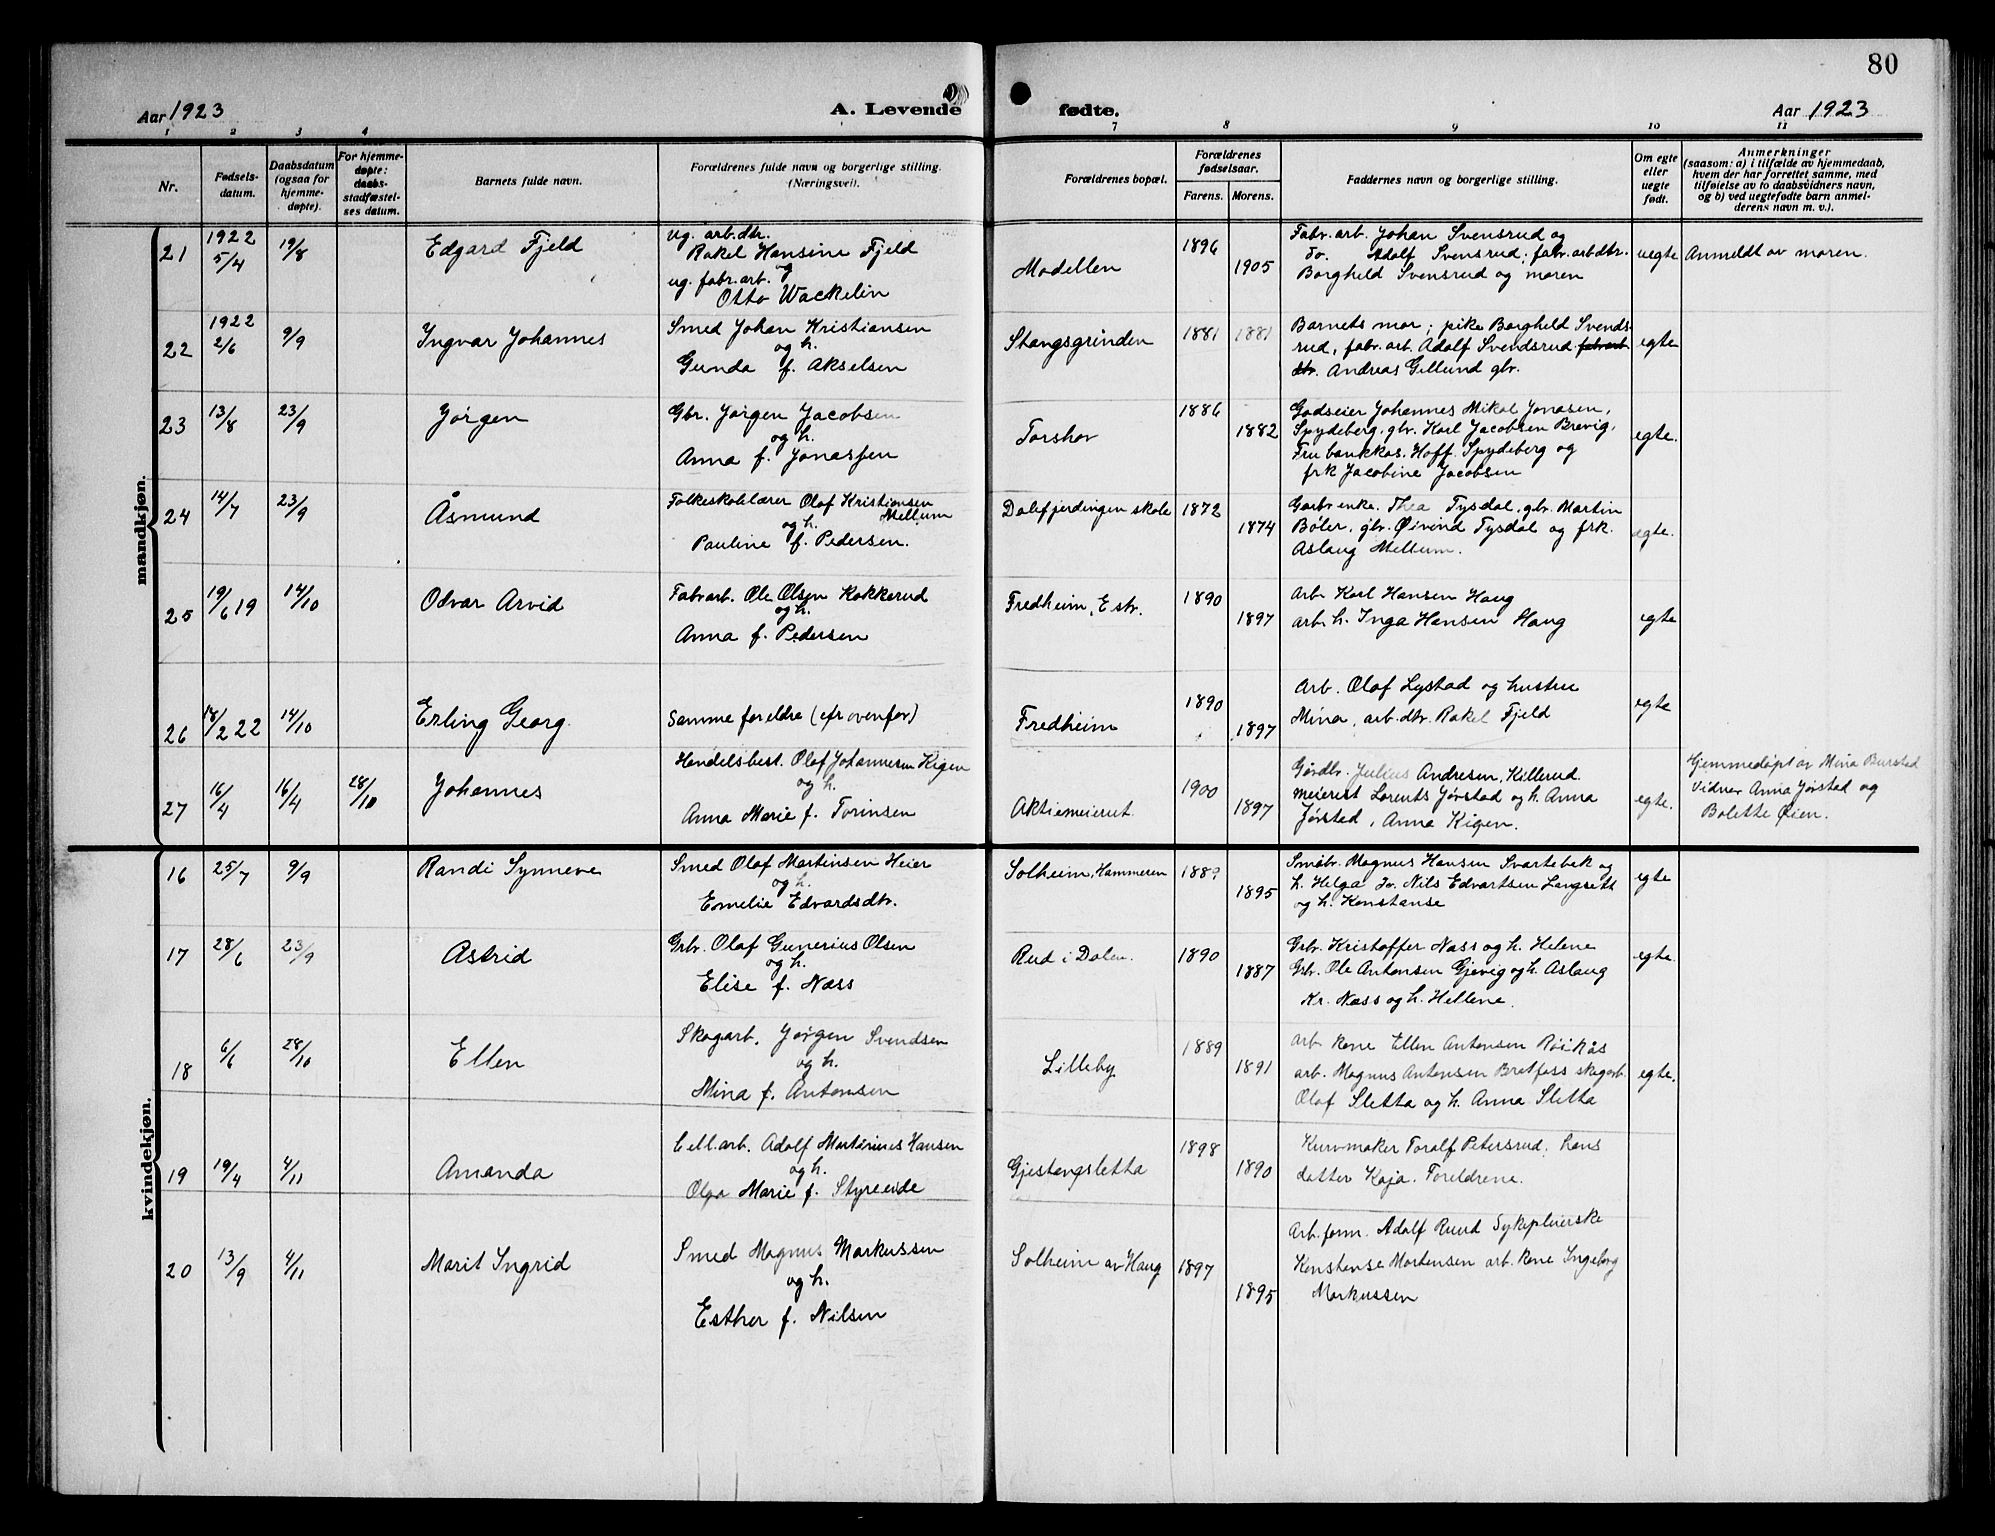 80
Aar 1923
A. Levende fødte.
Aar 1923
1 2 3 4 7 8 9 10 11
Nr.
Fødsels-
datum.
Daabsdatum
(ogsaa for
hjemme-
døpte).
For hjemme-
døpte:
daabs-
stadfæstel-
ses datum.
Barnets fulde navn.
Forældrenes fulde navn og borgerlige stilling.
(Næringsvei).
Forældrenes bopæl.
Forældrenes
fødselsaar.
Farens. Morens.
Faddernes navn og borgerlige stilling.
Om egte
eller
uegte
født.
Anmerkninger
(saasom: a) i tilfælde av hjemmedaab,
hvem der har forrettet samme, med
tilføielse av to daabsvidners navn,
og b) ved uegtefødte barn anmel-
derens navn m. v.).
mandkjøn.
21
1922
5/4
19/8
Edgard Fjeld
ug. arb.dtr.
Rakel Hansine Fjeld
og
ug. fabr.arb.
Otto Wackelin
Modellen
1896
1905
Fabr. arb. Johan Svensrud og
Fo. Adolf Svensrud, fabr. arb.dtr.
Borghild Svensrud og moren
uegte
Anmeldt av moren.
22
1922
2/6
9/9
Ingvar Johannes
Smed Johan Kristiansen
og h.
Gunda f. Akselsen
Stangsgrinden
1881
1881
Barnets mor; pike Borghild Svends-
rud, fabr. arb. Adolf Svendsrud fabrarb
dtr. Andreas Gillund gbr.
egte
23
13/8
23/9
Jørgen
Gbr. Jørgen Jacobsen
og h.
Anna f. Jonassen
Torshov
1886
1882
Godseier Johannes Mikal Jonasen,
Spydeberg, gbr. Karl Jacobsen Brevig,
Fru bankkas. Hoff. Spydeberg og
frk Jacobine Jacobsen
egte.
24
14/7
23/9
Åsmund
Folkeskolelærer Olaf Kristiansen
og h. Mellum
Pauline f. Pedersen.
Dalefjerdingen skole
1872
1874
Gaardbr enke. Thea Tysdal, gbr. Martin
Bøler, gbr. Øivind Tysdal og frk.
Aslaug Mellum.
egte.
25
19/6 19
14/10
Odvar Arvid
Fabrarb. Ole Olsen Kokkerud
og h.
Anna f. Pedersen
Fredheim, E str.
1890
1897
Arb. Karl Hansen Haug
arb. h. Inga Hansen Haug
egte
26
18/2 22
14/10
Erling Georg.
Samme foreldre (cfr ovenfor)
Fredheim
1890
1897
Arb. Olaf Lystad og hustru
Mina, arb. dtr. Rakel Fjeld
egte
27
16/4
16/4
28/10
Johannes
Handelsbest. Olaf Johannesen Kigen
og h.
Anna Marie f. Torinsen
Aktiemeieriet.
1900
1897
Gårdbr. Julius Andresen, Killerud
meierist Lorents Jørstad og h. Anna
Jørstad, Anna Kigen.
egte.
Hjemmedøpt av Mina Burstad
Vidner Anna Jørstad og
Bolette Øien.
kvindekjøn.
16
25/7
9/9
Randi Synneve
Smed Olaf Martinsen Heier
og h.
Emelie Edvardsdtr.
Solheim, Hammeren
1889
1895
Småbr. Magnus Hansen Svartebek og
h. Helga Fo. Nils Edvartsen Langsett
og h. Konstanse
egte
17
28/6
23/9
Astrid
Grbr. Olaf Gunerius Olsen
og h.
Elise f. Næss
Rud i Dalen.
1890
1887
Grbr. Kristoffer Næss og h. Helene
Grbr. Ole Antonsen Gjevig og h. Aslaug
Kr. Næss og h. Hellene.
egte.
18
6/6
28/10
Ellen
Skogarb. Jørgen Svendsen
og h.
Mina f. Antonsen
Lilleby
1889
1891
Arb. kone Ellen Antonsen Røikås
arb. Magnus Antonsen Bratfoss skogarb.
Olaf Sletta og h. Anna Sletta
egte.
19
19/4
4/11
Amanda
Cell.arb. Adolf Martinius Hansen
og h.
Olga Marie f. Styreeide
Gjestangsletta
1898
1890
Kurvmaker Toralf Petersrud, hans
datter Kaja. Foreldrene.
20
13/9
4/11
Marit Ingrid
Smed Magnus Markussen
og h.
Esther f. Nilsen
Solheim av Haug
1897
1895
Arb. form. Adolf Ruud Sykepleierske
Konstanse Mortensen arb. kone Ingeborg
Markussen